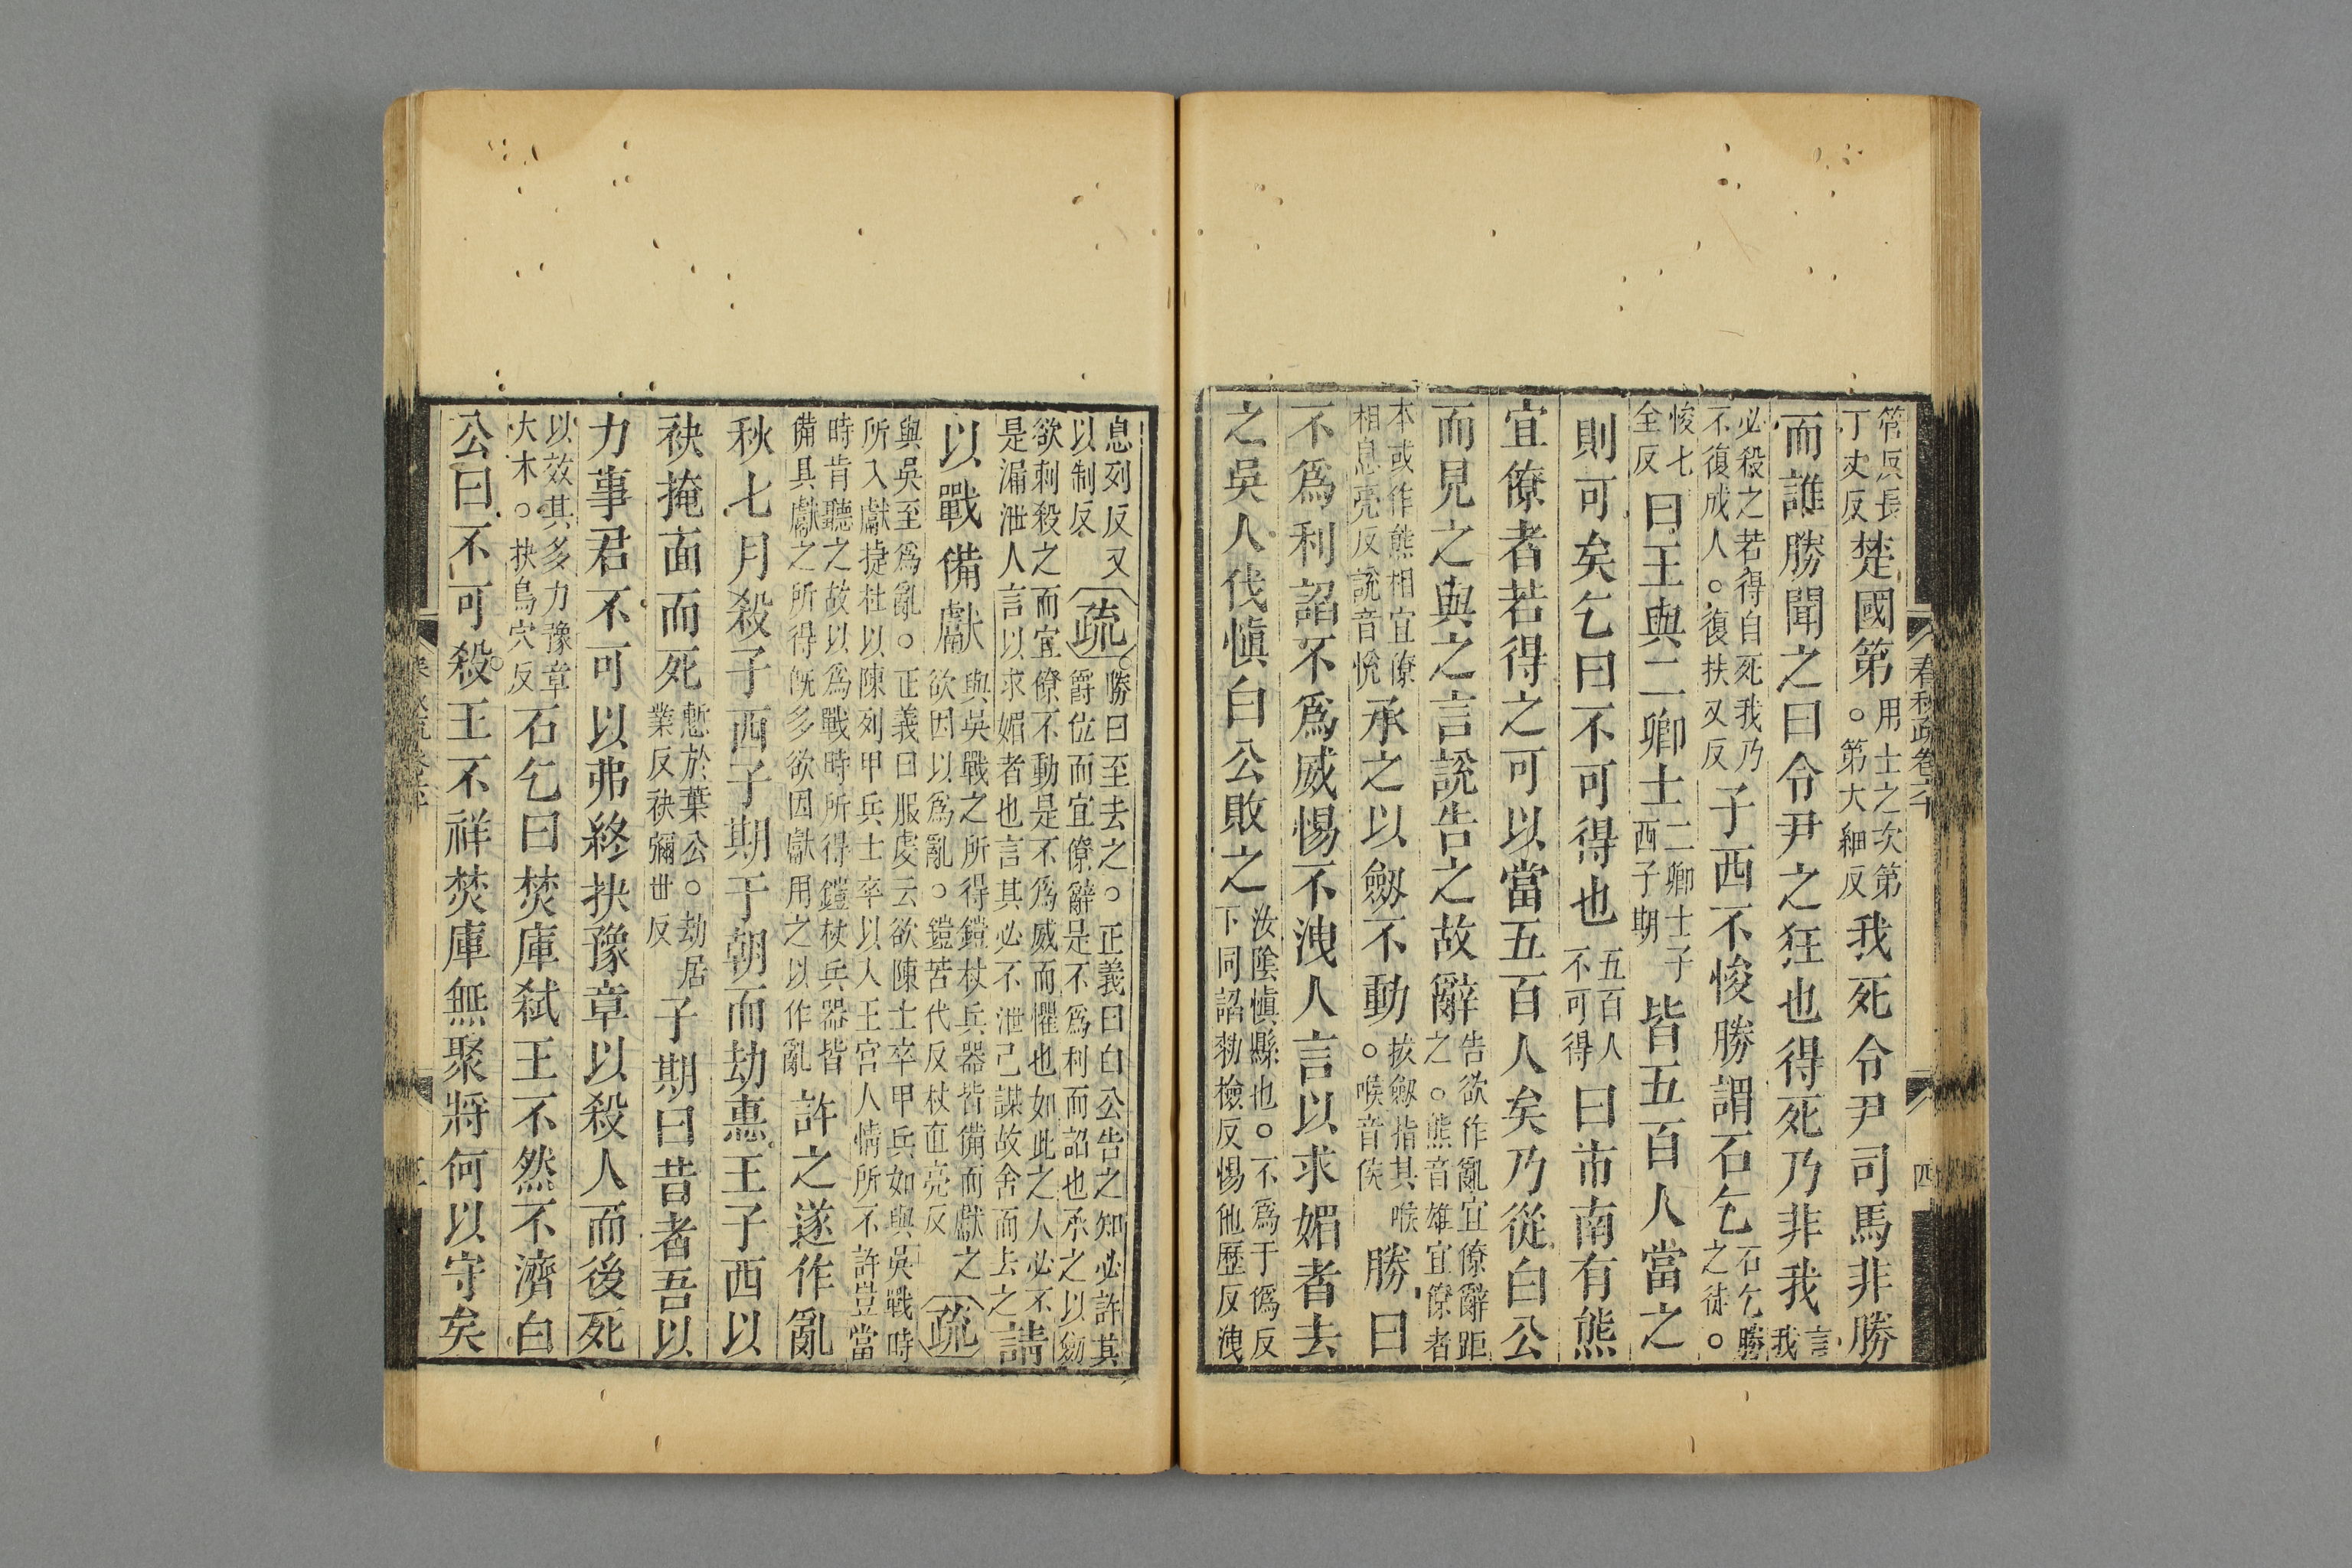 春秋疏卷六十
四
管反長丁丈反楚國第用士之次第。第大細反我死令尹司馬非勝
而誰勝聞之曰令尹之狂也得死乃非我言我
必殺之若得自死我乃不復成人。復扶又反子西不悛勝謂石乞石乞勝之徒。
悛七全反曰王與二卿士二卿士子西子期皆五百人當之
則可矣乞曰不可得也五百人不可得曰市南有熊
宜僚者若得之可以當五百人矣乃從白公
而見之與之言說告之故辭告欲作亂宜僚辭距之。熊音雄宜僚者
本或作熊相宜僚相息亮反說音悅承之以劒不動拔劒指其喉。喉音侯勝曰
不爲利謟不爲威惕不洩人言以求媚者去
之吳人伐愼白公敗之汝陰愼縣也。不爲于僞反下同謟勑檢反惕他歷反洩
息列反又以制反疏勝曰至去之。正義曰白公告之知必許其爵位而宜僚辭是不爲利而謟也承之以劒
欲刺殺之而宜僚不動是不爲威而懼也如此之人必不是漏泄人言以求媚者也言其必不泄己謀故舍而去之請
以戰備獻與吳戰之所得鎧杖兵器皆備而獻之欲因以爲亂。鎧苦代反杖直亮反疏
與吳至爲亂。正義曰服虔云欲陳士卒甲兵如與吳戰時所入獻捷杜以陳列甲兵士卒以入王宮人情所不許豈當
時肯聽之故以爲戰時所得鎧杖兵器皆備具獻之所得旣多欲因獻用之以作亂許之遂作亂
秋七月殺子西子期于朝而劫惠王子西以
袂掩面而死慙於葉公。劫居業反袂彌世反子期曰昔者吾以
力事君不可以弗終抉豫章以殺人而後死
以效其多力豫章大木。抉烏穴反石乞曰焚庫弑王不然不濟白
公曰不可殺王不祥焚庫無聚將何以守矣